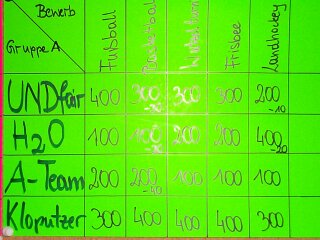 Bewerb
Gruppe A
Fußball
Basketball
Frisbee
Landhockey
UNDfür 400 300 -20 300 300 200 -10
H2O 100 100 -30 200 200 400 -20
A-Team 200 200 100 100 100
Kloputzer 300 400 400 400 300